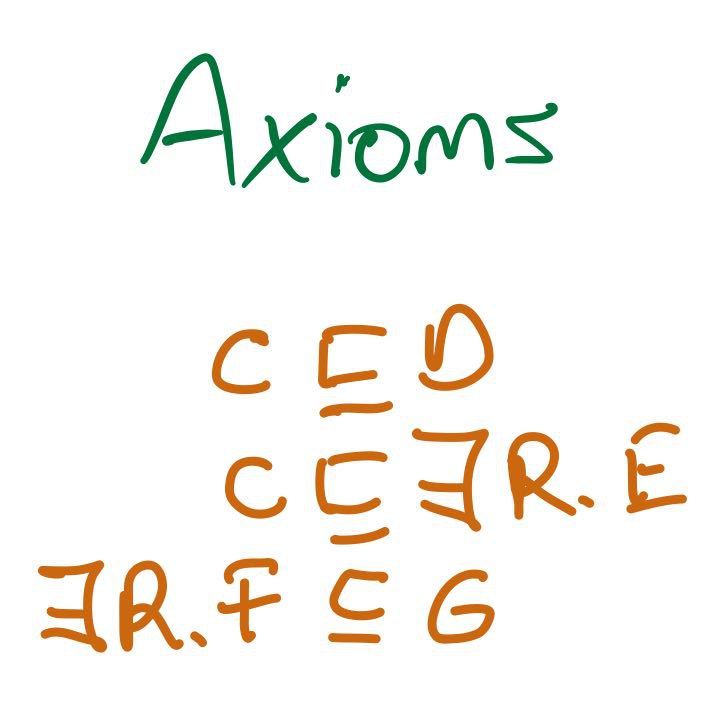 Axioms
C ⊑ D
C ⊑ ∃R.E
∃R.F ⊑ G